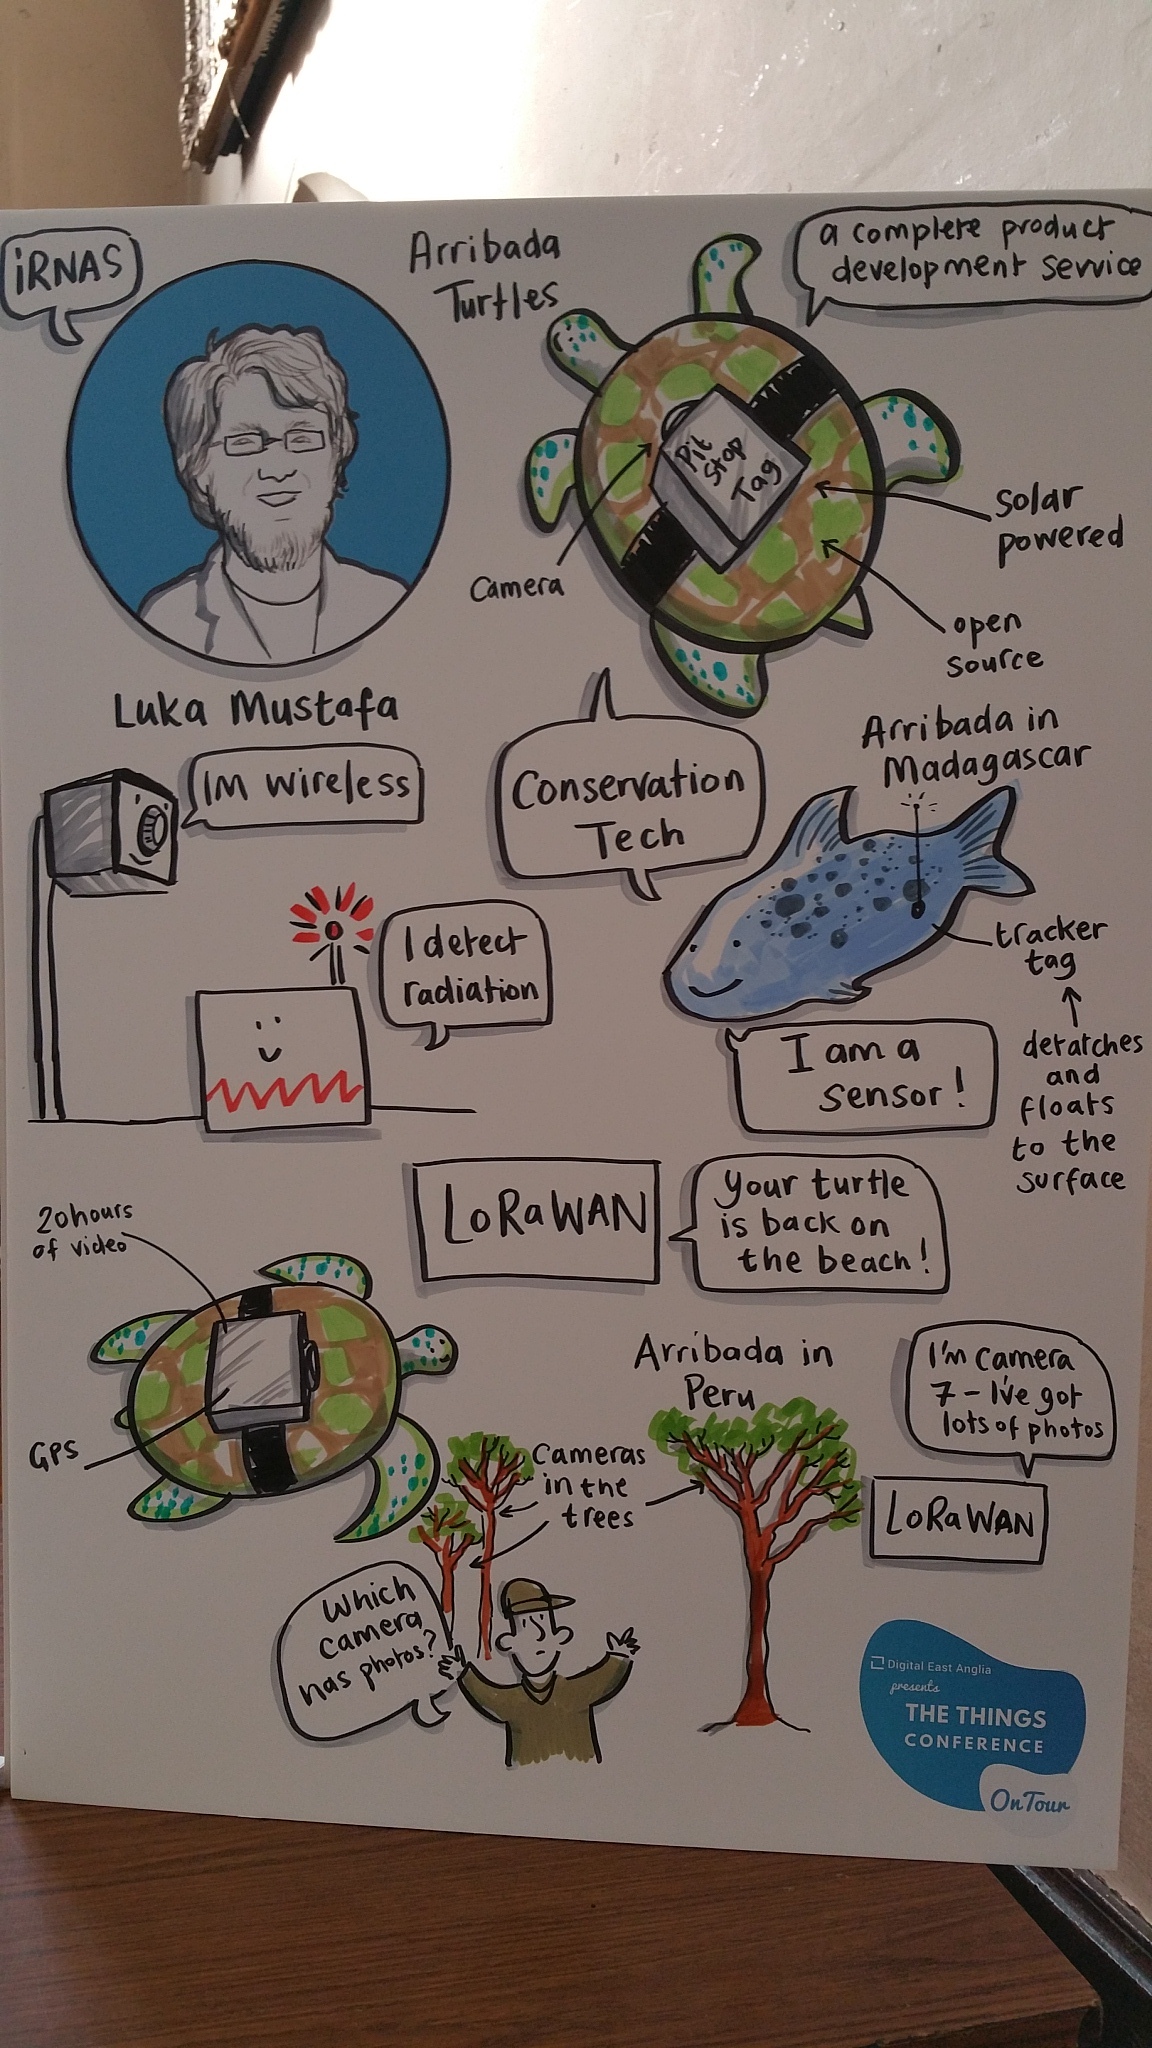 iRNAS
Arribada
Turtles
a complete product
development service
Pit
Stop
Tag
Camera
solar
powered
open
source
Luka Mustafa
IM wireless
Conservation
Tech
Arribada in
Madagascar
I detect
radiation
tracker
tag
detatches
and
floats
to the
surface
I am a
sensor!
LoRaWAN
your turtle
is back on
the beach!
20hours
of video
GPS
Arribada in
Peru
I'm camera
7 - I've got
lots of photos
Cameras
in the
trees
LoRaWAN
Which
camera
has photos?
Digital East Anglia
presents
THE THINGS
CONFERENCE
On Tour